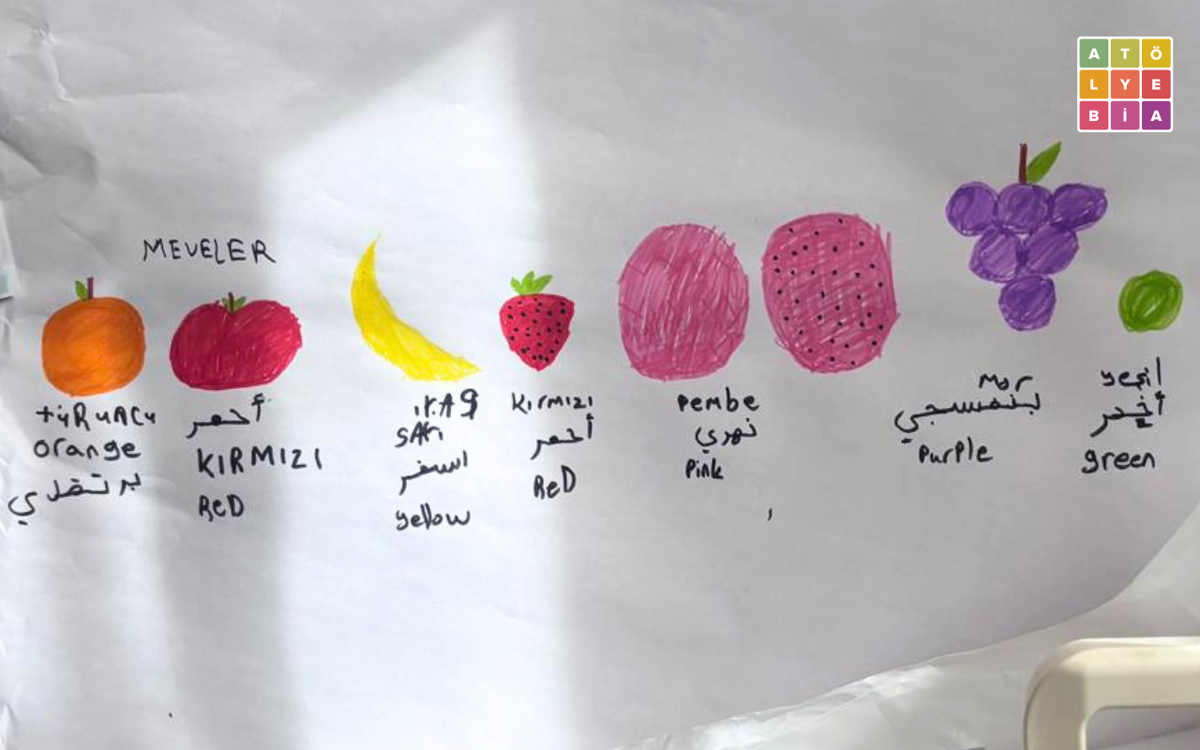 A T Ö
L Y E
B İ A
MEVELER
+üRUNCU
orange
برتقلي
أحمر
KIRMIZI
ReD
SARI
اسفر
yellow
KIrmIZI
أحمر
ReD
pembe
زهري
Pink
Mor
بنفسجي
PurPle
yeşil
أخضر
green